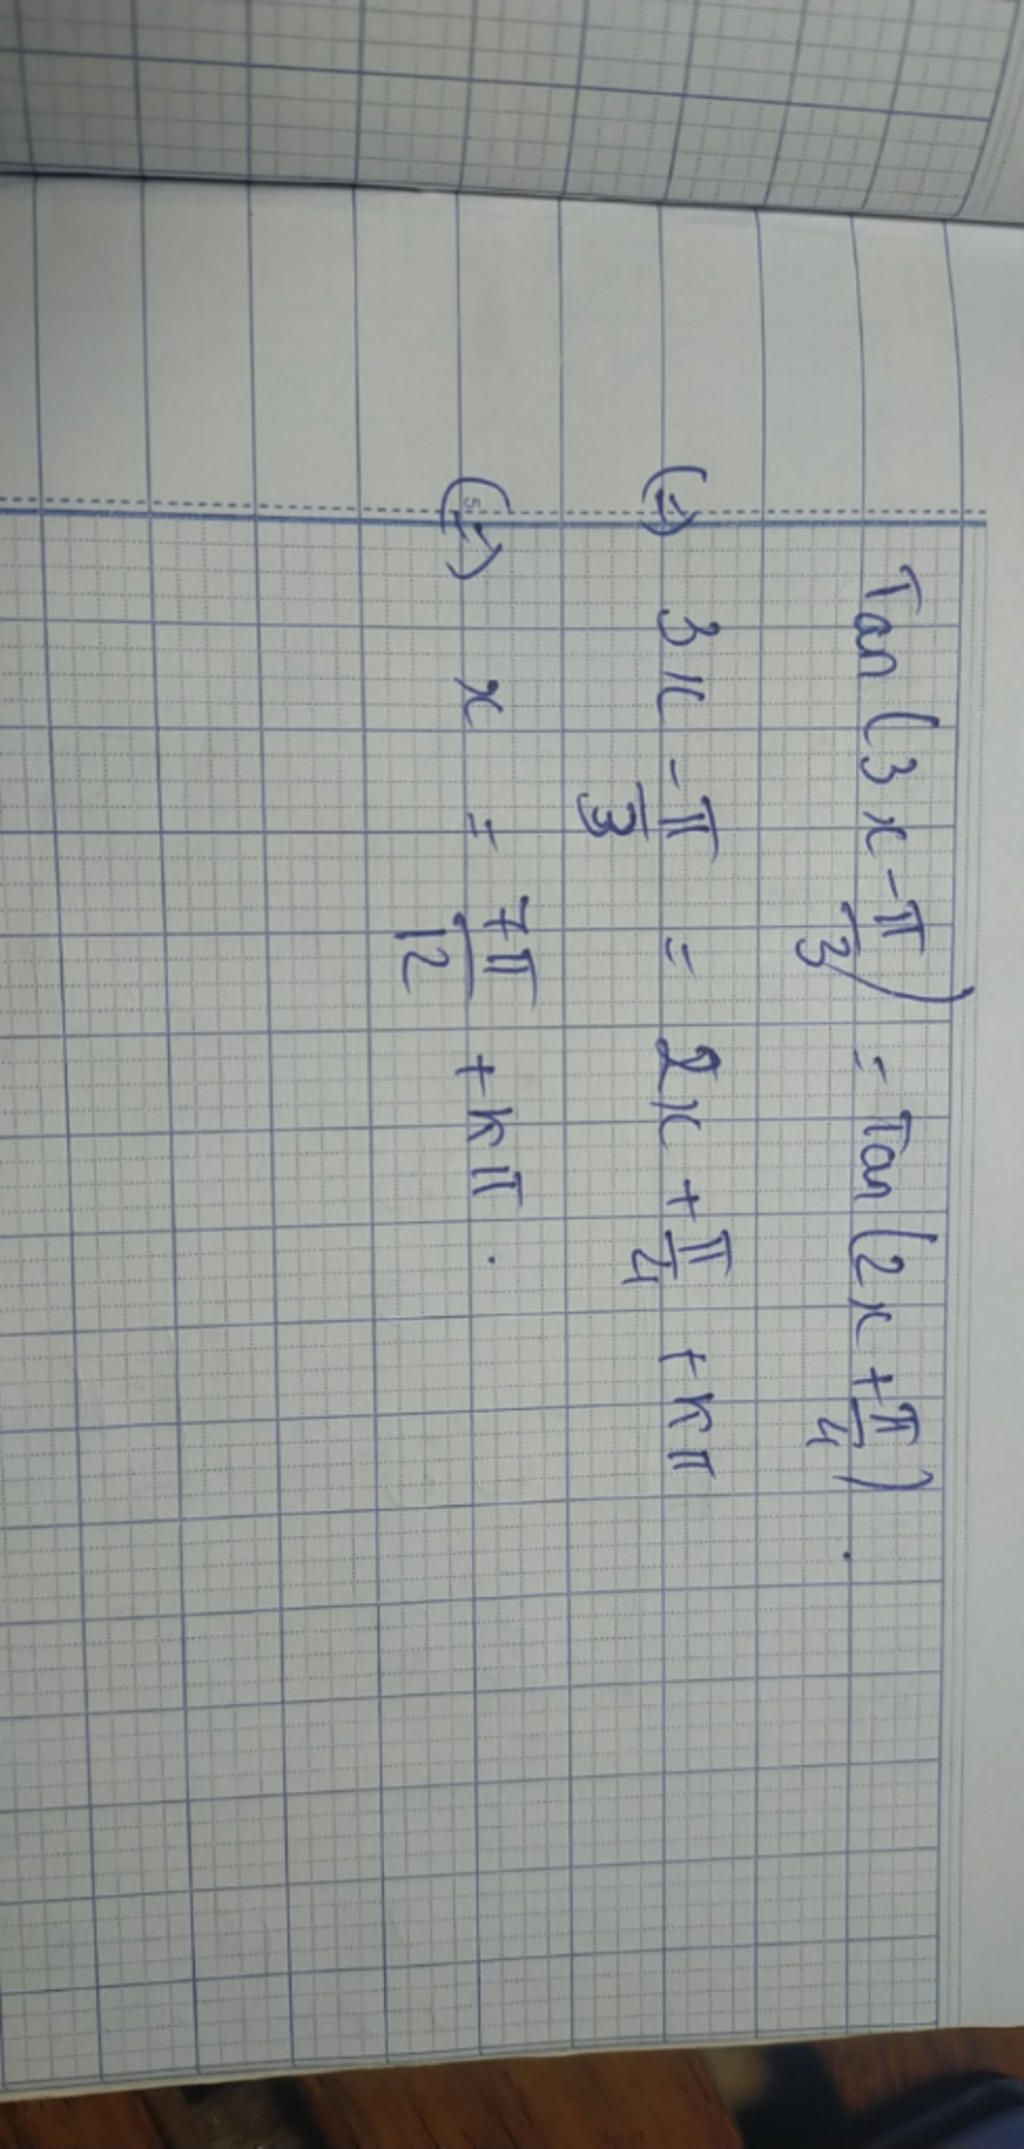 Tan (3x - π/3) = Tan (2x + π/4) .
(⇔) 3x - π/3 = 2x + π/4 + kπ
(⇔) x = 7π/12 + kπ .